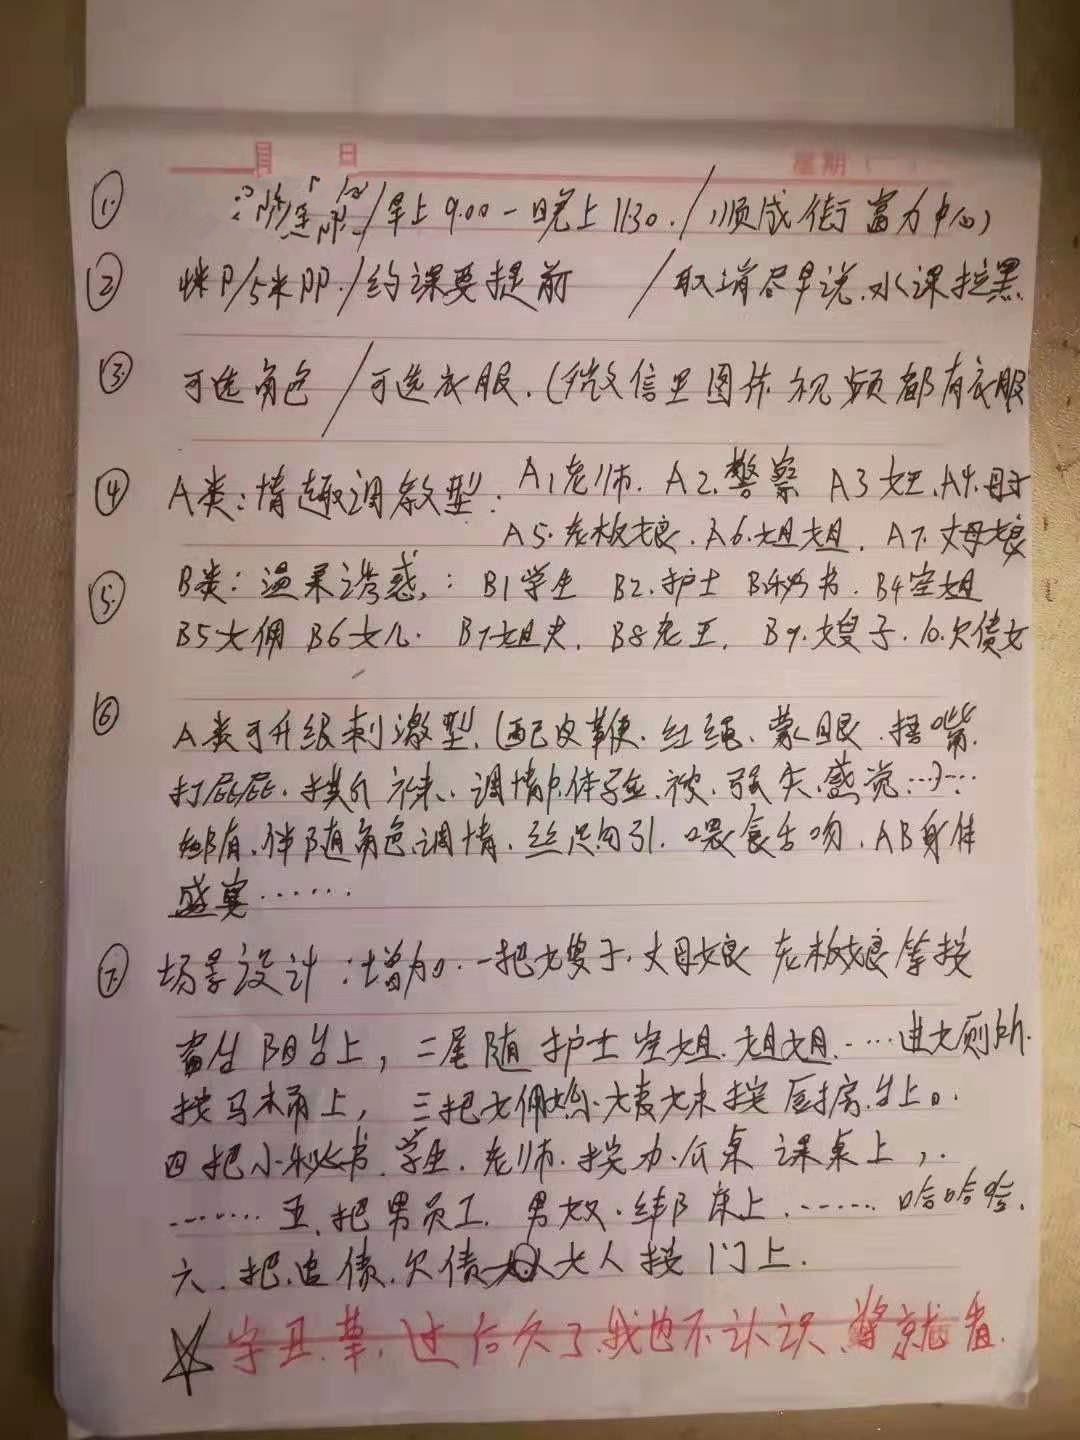 月 日 星期( )
① /早上9.00-晚上11:30./(顺成街富力中心)
② /约课要提前 /取消尽早说.水课拉黑.
③ 可选角色/可选衣服.(微信里图片视频都有衣服
④ A类:情趣调教型: A1老师. A2.警察 A3女王.A4.母
A5.老板娘.A6.姐姐. A7.丈母娘
⑤ B类:温柔诱惑,: B1学生 B2.护士 B秘书.B4空姐
B5女佣 B6女儿. B7姐夫. B8老王. B9.嫂子.10.欠债女
⑥ A类可升级刺激型.(配皮鞭.红绳.蒙眼.捂嘴.
打屁屁. 调情.体验.被.强失.感觉……
都有.伴随角色调情.丝足勾引.喂食舌吻.AB身体
盛宴……
⑦ 场景设计:增加.一把嫂子.丈母娘 老板娘等按
窗台阳台上,二尾随护士空姐.姐姐……进女厕所.
按马桶上,三把女佣 按厨房台上。.
四把小秘书.学生.老师.按办公桌 课桌上,.
……五.把男员工.男奴.绑床上.……哈哈哈.
六.把.追债.欠债 女人按门上.
☆字丑.草.过后久了.我也不认识.将就看.